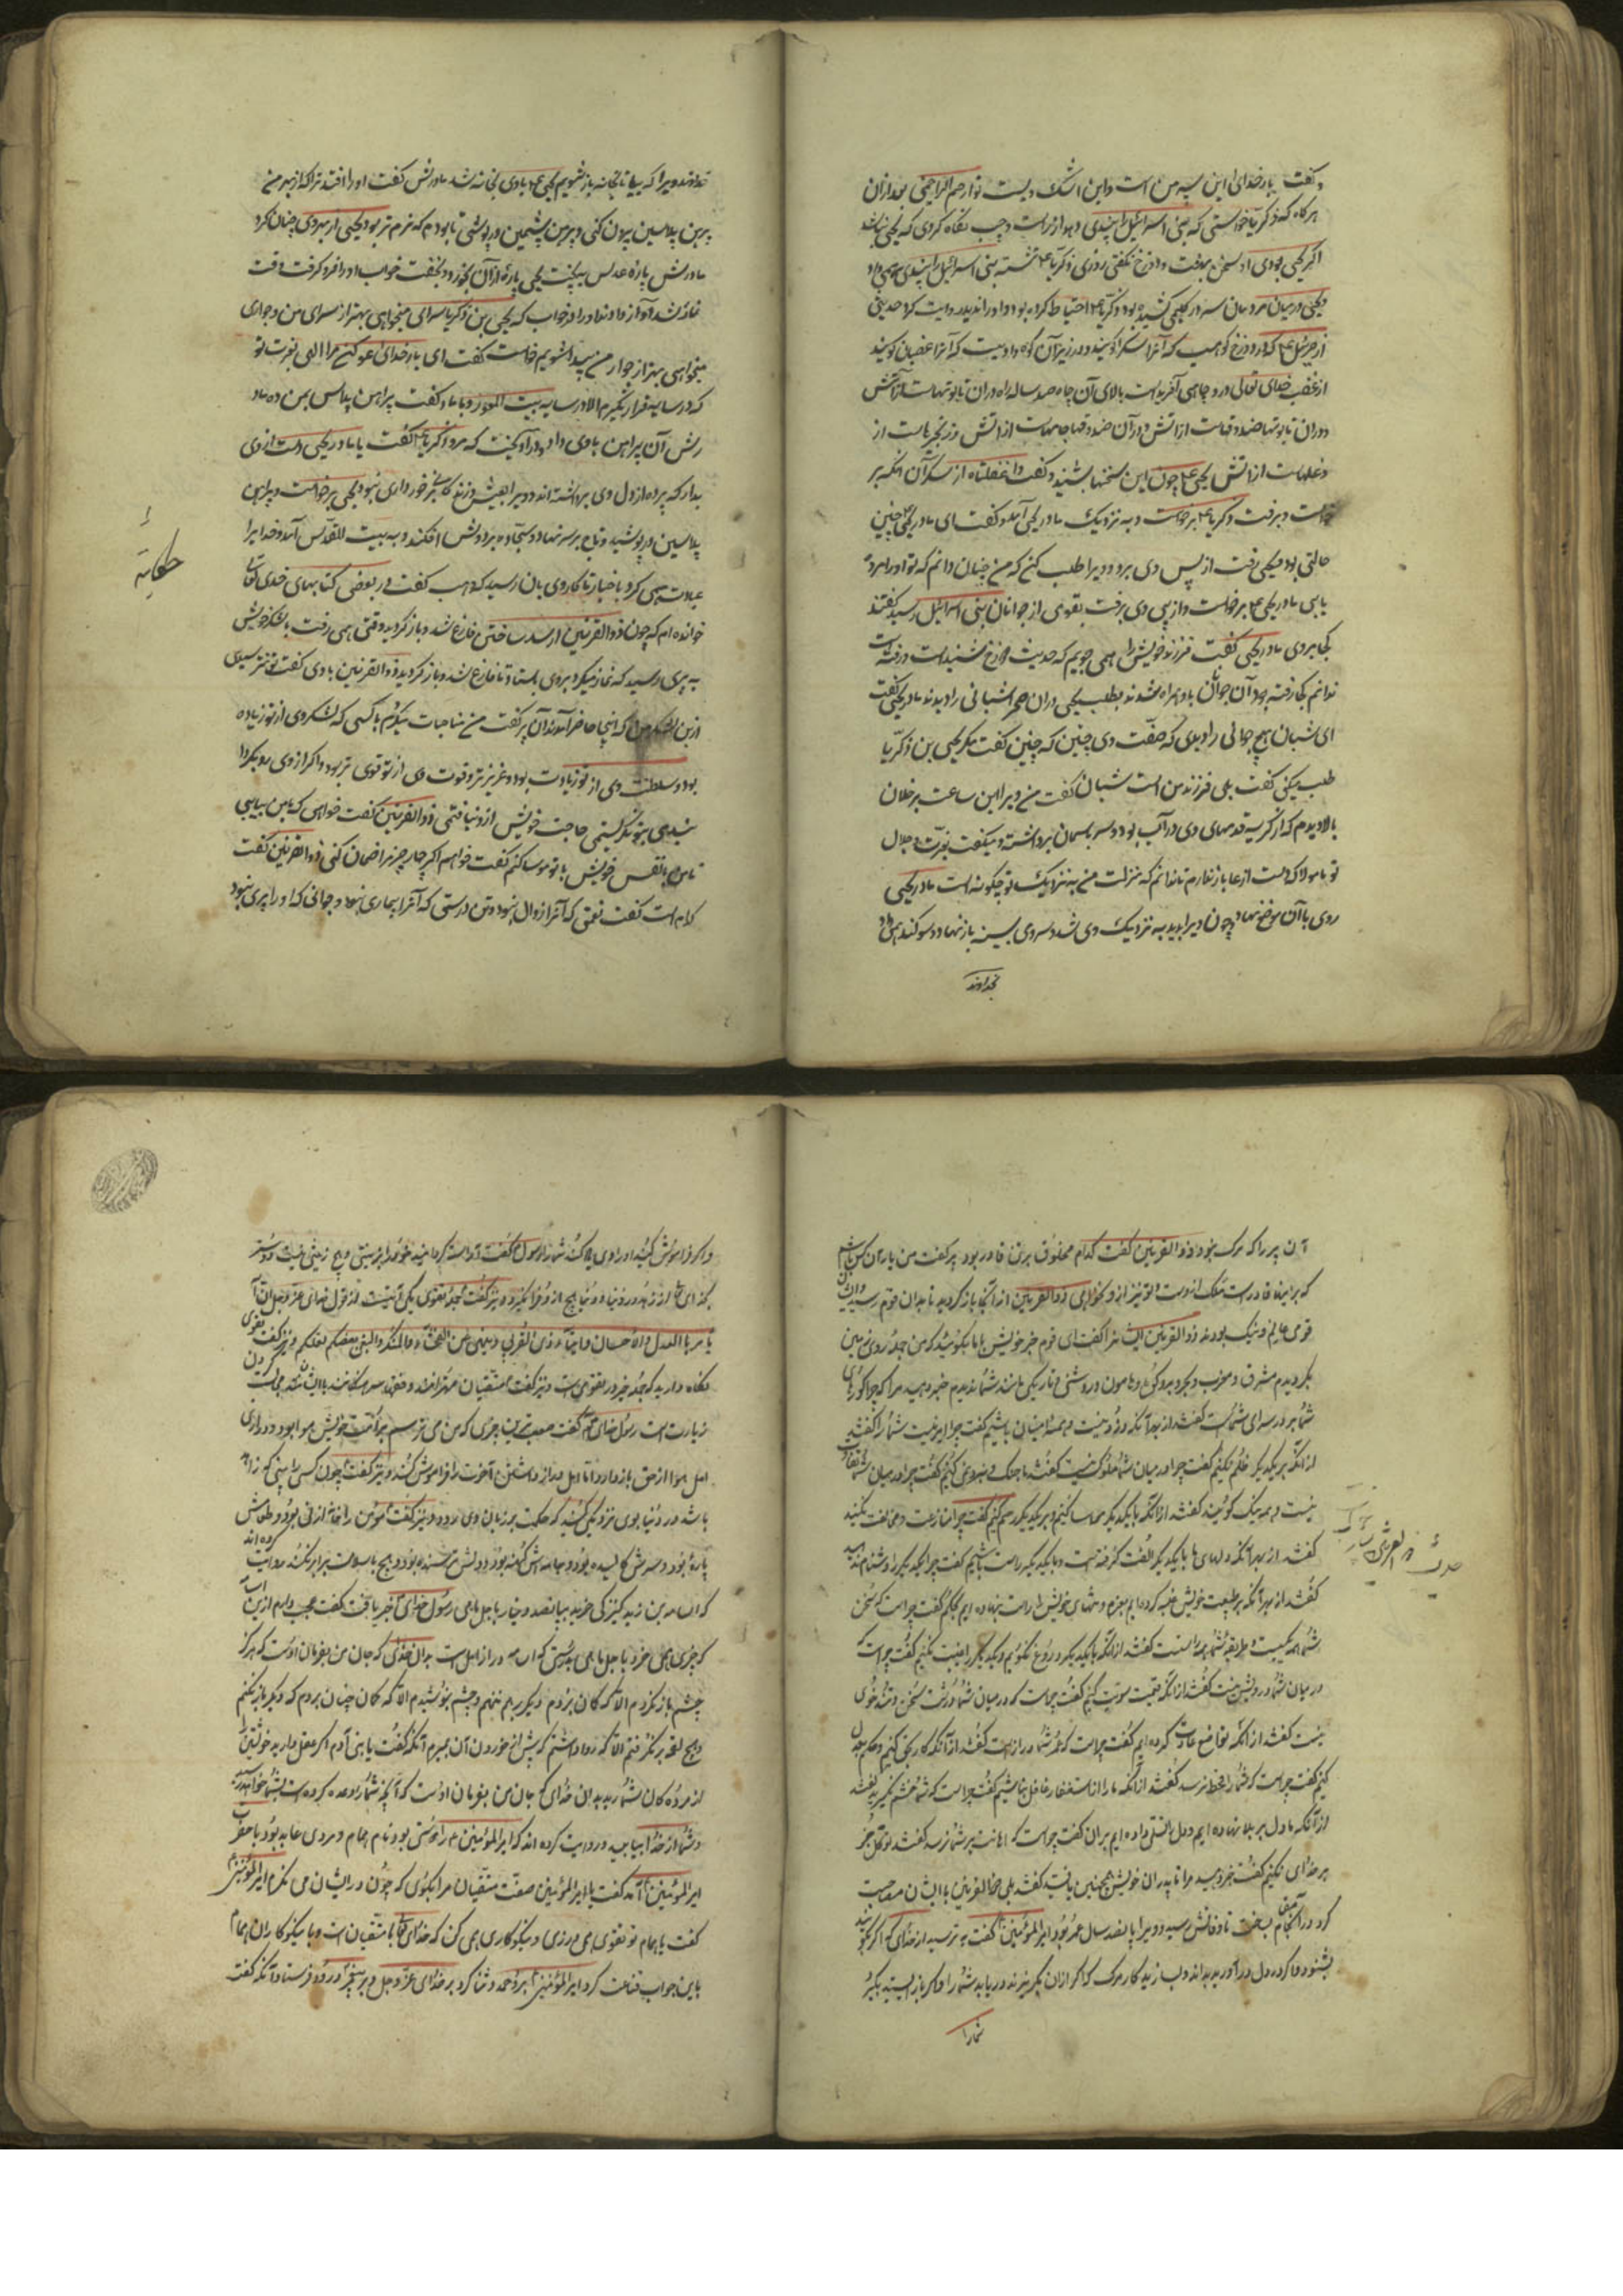 و گفت بار خدایا این پسر من است و این اشک ویست تو ارحم الراحمینی بعد ازان
هر گاه که زکریا خواستی که بنی اسرائیل را پند دهد از راست و چپ نگاه کردی که یحیی نباشد
اگر یحیی بودی او سخن بهشت و دوزخ نگفتی روزی زکریا ع نشسته بنی اسرائیل را پند همی داد
و یحیی در میان مردمان سر در گلیمی کشیده بود و زکریا ع احتیاط کرده بود و او را ندید روایت کرد حدیثی
از جبرئیل ع که در دوزخ کوهیست که آنرا سکران گویند و در زیر آن کوه وادیست که آنرا غضبان گویند
از غضب خدای تعالی درو چاهی آفریده است بالای آن چاه صد ساله راه دران تابوتهاست از آتش
و دران تابوتها صندوقهاست از آتش و در آن صندوقها جامهاست از آتش و زنجیرهاست از
و غلهاست از آتش یحیی ع چون این سخنها بشنید گفت وا غفلتاه از سکران آنگه بر
خواست و برفت زکریا ع برخواست و به نزدیک مادر یحیی آمد و گفت ای مادر یحیی چنین
حالتی بود و یحیی رفت از پس وی برو و ویرا طلب کن که من چنان دانم که تو او را مرده
یابی مادر یحیی ع برخواست و از پی وی برفت بقومی از جوانان بنی اسرائیل رسید گفتند
کجا میروی مادر یحیی گفت فرزند خویش را همی جویم که حدیث دوزخ شنیده است و رفته است
ندانم کجا رفته بود آن جوانان با او همراه شدند بطلب یحیی دران صحرا شبانی را دیدند مادر یحیی گفت
ای شبان هیچ جوانی را دیدی که صفت وی چنین که چنین گفت مگر یحیی بن زکریا
طلب میکنی گفت بلی فرزند من است شبان گفت من ویرا این ساعت بر فلان
بالا دیدم که از گریه قدمهای وی در آب بود و سر بآسمان برداشته و میگفت بعزت و جلال
تو یا مولا که دست از دعا باز ندارم تا ندانم که منزلت من به نزدیک تو چگونه است مادر یحیی
روی با آن موضع نهاد چون ویرا بدید به نزدیک وی شد و سر وی بسینه باز نهاد و سوکند همی داد
بخداوند
بخداوند ویرا که بیا تا بخانه باز شویم یحیی ع با وی بخانه شد مادرش گفت او را افتد ترا که از بهر من
پیرهن پلاسین بیرون کنی و پیرهن پشمین در پوشی تا بودم که نرم تر بود یحیی از بهر وی چنان کرد
مادرش پارهٔ عدس بپخت یحیی پارهٔ از آن بخورد و بخفت خواب او را فرو گرفت و وقت
نماز شد آواز دادند او را در خواب که یحیی بن زکریا سرای میخواهی بهتر از سرای من و جواری
میخواهی بهتر از جوار من بیدار شو برخاست گفت ای بار خدای عفو کن مرا الهی بعزت تو
که در سایه قرار نگیرم الا در سایه بیت المقدس و با مادر گفت پیراهن پلاس بمن ده مادر
رش آن پیراهن با وی داد و در او آویخت که مرو زکریا ع گفت یا مادر یحیی دست از وی
بدار که پرده از دل وی برداشته اند و ویرا بعیش و زندگانی برخورداری نبود یحیی برخواست و پیراهن
پلاسین در پوشید و تاج بر سر نهاد و سجاده بر دوش افکند و به بیت المقدس آمد و خدایرا
عبادت همی کرد با خبار تا کار وی بآن رسید که وهب گفت در بعضی کتابهای خدای تعالی
خوانده ام که چون ذوالقرنین از سد ساختن فارغ شد و باز گردید وقتی همی رفت با لشکر خویش
به پیری رسید که نماز میکرد بر وی بایستاد تا فارغ شد و باز گردید ذوالقرنین با وی گفت تو نترسیدی
ازین لشکر من که اینجا حاضر آمدند آن پیر گفت من مناجات میکردم با کسی که لشکر وی از تو زیاده
بود و سلطنت وی از تو زیادت بود و عزیز تر و قوت وی از تو قوی تر بود و اگر از وی رو بگردا
نیدمی بتو نگریستمی حاجت خویش از و نیافتمی ذوالقرنین گفت خواهی که با من بیایی
تا من با نفس خویش با تو مواسا کنم گفت خواهم اگر چهار چیز مرا ضمان کنی ذوالقرنین گفت
کدام است گفت نعمتی که آنرا زوال نبود و تن درستی که آنرا بیماری نبود و جوانی که او را پیری نبود
حکایة
آن پیر را که مرگ نبود ذوالقرنین گفت کدام مخلوق برین قادر بود پیر گفت من با آن کس باشم
که برینها قادر است ملک از وست و تو نیز از و کنواهی ذوالقرنین از آنجا باز گردید تا بدان قوم رسید
قومی عالم و نیک بودند ذوالقرنین ایشانرا گفت ای قوم خبر خویش با ما بگوئید که من جمله روی زمین
بگردیدم مشرق و مغرب و بحر و بر و کوه و هامون و روشنی و تاریکی مانند شما ندیدم خبر دهید مرا که چرا گورهای
شما بر در سرای شماست گفتند از بهر آنکه دزد نیست و همه امینان باشیم گفت چرا امیر نیست شما را گفتند
از آنکه بر یکدیگر ظلم نکنیم گفت چرا در میان شما ملوک نیست گفتند ما جنگ و خصومت نکنیم گفت چرا در میان شما تفاوت
نیست و همه یک گونه‌اید گفتند از آنکه با یکدیگر مواسا کنیم و بر یکدیگر رحم کنیم گفت چرا منازعت و مخالفت نکنید
گفتند از بهر آنکه دلهای ما با یکدیگر الفت گرفته است و با یکدیگر راست باشیم گفت چرا یکدیگر را دشنام ندهید
گفتند از بهر آنکه بر طبیعت خویش غلبه کرده ایم بعزم و تنهای خویش را راست بنهاده ایم بحلم گفت چراست که سخن
شما همه یکیست و طریقه شما همه راست است گفتند از آنکه با یکدیگر دروغ نگوئیم و یکدیگر را غیبت نکنیم گفت چراست که
در میان شما درویش نیست گفتند از آنکه قسمت بسویت کنیم گفت چراست که در میان شما درشت سخن و تند خوی
نیست گفتند از آنکه تواضع عادت کرده ایم گفت چراست که عمر شما دراز است گفتند از آنکه کار بحق کنیم و حکم بعدل
کنیم گفت چراست که شما را قحط نرسد گفتند از آنکه ما را از استغفار غافل نباشیم گفت چراست که شما خشم نگیرید گفتند
از آنکه ما دل بر بلا نهاده ایم و دل بآشتی داده ایم بران گفت چراست که اهانت بر شما نرسد گفتند توکل جز
بر خدای نکنیم گفت خبر دهید مرا تا پدران خویش همچنین یافتید گفتند بلی ذوالقرنین با ایشان مصاحبت
کرد و در آنجا بساخت تا وفاتش رسید و ویرا پانصد سال عمر بود و امیر المؤمنین گفت بترسید از خدای که اگر بگوئید
بشنود و اگر در دل درآورید بداند و بسازید کار مرگ که اگر ازان بگریزند دریابد شما را و اگر باز ایستید بگیرد
شمارا
و اگر فراموش کنید او را وی یاد کند شما را رسول گفت آراسته گردانید خود را بدرستی و هیچ زینتی نیست دوستر
بخدای از زهد در دنیا و دنیا هیچ از و فرا نگیرد و نیز گفت جمله تقوی یکی آنست از قول خدای عز و جل ان الله
یأمر بالعدل والاحسان وایتاء ذی القربی وینهی عن الفحشاء والمنکر والبغی یعظکم لعلکم و نیز گفت تقوی
نگاه دارید که جمله خیر در تقوی است و نیز گفت متقیان مهترانند و فقها سروران‌اند با ایشان نشست کردن
زیارت است رسول خدای گفت صعب ترین چیزی که من می ترسم بر امت خویش هوا بود و درازی
امل هوا از حق باز دارد و اما امل دراز داشتن آخرت را فراموش کند و نیز گفت چون کسی را بینی که زاهد
باشد در دنیا بوی نزدیکی کنید که حکمت بر زبان وی رود و نیز گفت مؤمن را خانه از نی بود و طعامش
پارهٔ بود و سرش کالیده بود و جامه اش کهنه بود و دلش ترسنده بود و هیچ با سلامت برابر نکند روایت کرده اند
که اسامه بن زید کنیزکی خرید بپانصد دینار با اجل ماهی رسول خدای خبر یافت گفت عجب دارم از اسامه
که چیزی همی خرد باجل ماهی بدرستی که اسامه دراز امل است بدان خدای که جان من بفرمان اوست که هرگز
چشم باز نکردم الا که گمان بردم دیگر برهم ننهم و چشم نپوشیدم الا که گمان چنان بردم که دیگر باز نکنم
و هیچ لقمه بر نگرفتم الا که روا داشتم که پیش از خوردن آن بمیرم آنگه گفت یا بنی آدم اگر عقل دارید خویشتن
از مرده گان بشمرید بدان خدای که جان من بفرمان اوست که آنچه شما را وعده کرده است بشما خواهد رسید
و شما از خدا بیابید و روایت کرده اند که امیر المؤمنین را مونسی بود نام همام و مردی عابد بود با حضرت
امیر المؤمنین آمد گفت یا امیر المؤمنین صفت متقیان مرا بگوی که چون در ایشان می نگرم امیر المؤمنین
گفت یا همام تو تقوی همی ورزی و نیکوکاری همی کن که خدای با متقیان است و با نیکوکاران همام
باین جواب قناعت نکرد امیر المؤمنین حمد و ثنا کرد بر خدای عز و جل و بر پیغمبر درود فرستاد آنگه گفت